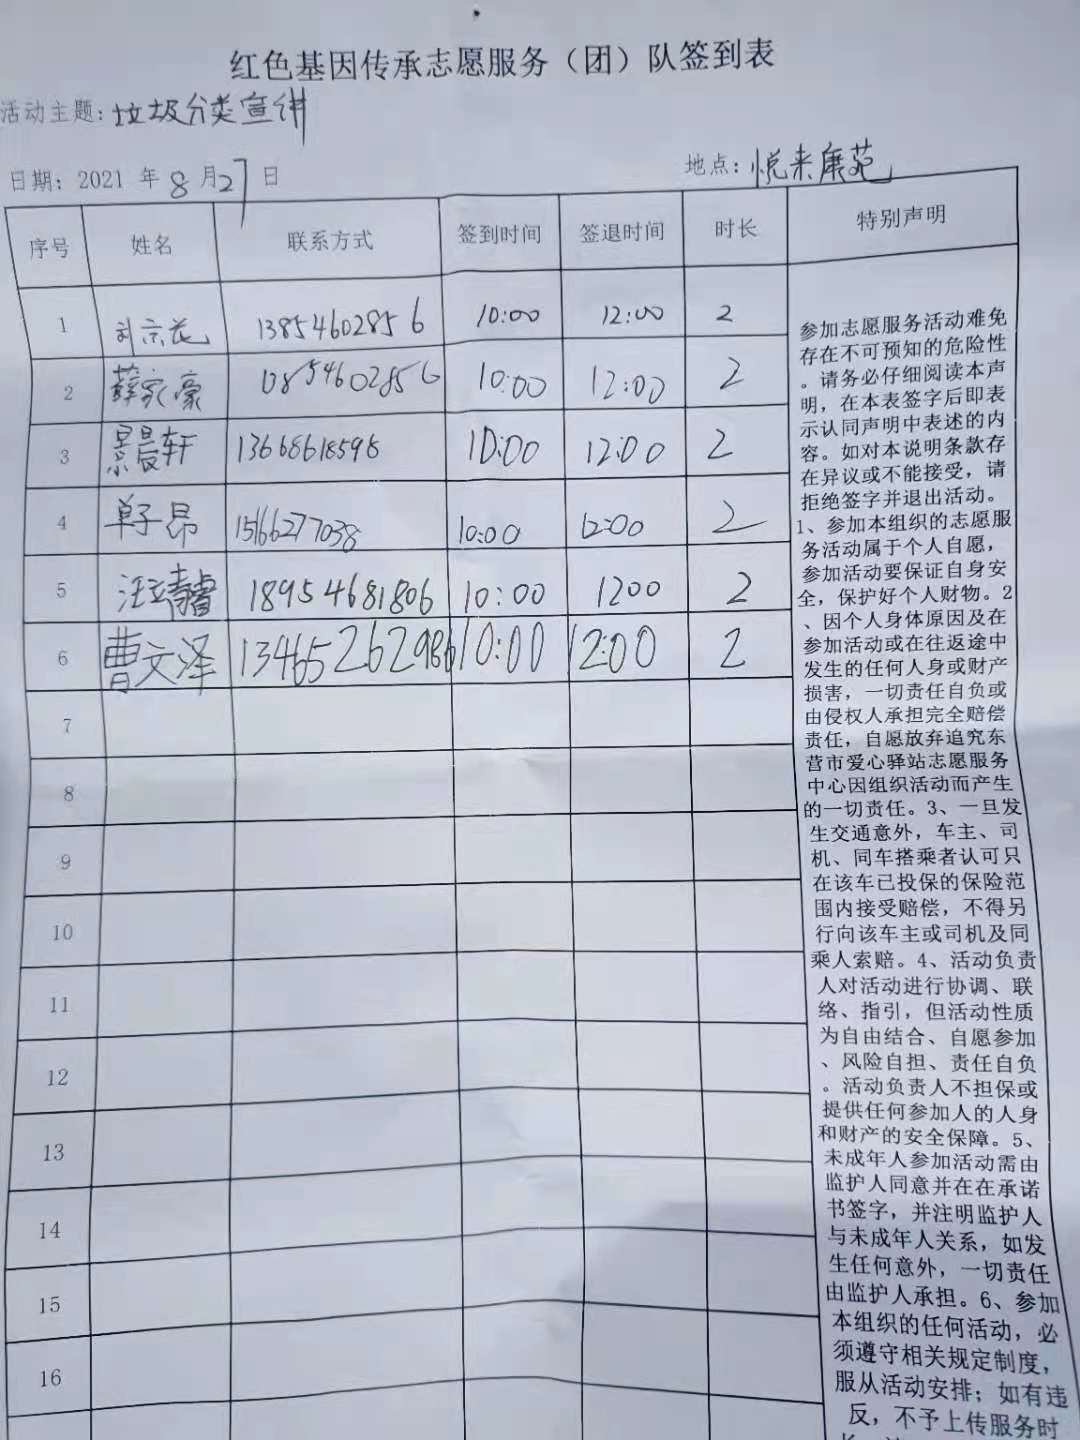 红色基因传承志愿服务（团）队签到表
活动主题：垃圾分类宣讲
日期：2021 年 8 月 27 日 地点：悦来康苑
序号 姓名 联系方式 签到时间 签退时间 时长 特别声明
1 刘宗花 13854602856 10:00 12:00 2
2 薛家豪 13854602856 10:00 12:00 2
3 景晨轩 13668618598 10:00 12:00 2
4 单子昂 15166277038 10:00 12:00 2
5 汪靖睿 18954681806 10:00 1200 2
6 曹文泽 13465262986 10:00 12:00 2
7
8
9
10
11
12
13
14
15
16
参加志愿服务活动难免
存在不可预知的危险性
。请务必仔细阅读本声
明，在本表签字后即表
示认同声明中表述的内
容。如对本说明条款存
在异议或不能接受，请
拒绝签字并退出活动。
1、参加本组织的志愿服
务活动属于个人自愿，
参加活动要保证自身安
全，保护好个人财物。2
、因个人身体原因及在
参加活动或在往返途中
发生的任何人身或财产
损害，一切责任自负或
由侵权人承担完全赔偿
责任，自愿放弃追究东
营市爱心驿站志愿服务
中心因组织活动而产生
的一切责任。3、一旦发
生交通意外，车主、司
机、同车搭乘者认可只
在该车已投保的保险范
围内接受赔偿，不得另
行向该车主或司机及同
乘人索赔。4、活动负责
人对活动进行协调、联
络、指引，但活动性质
为自由结合、自愿参加
、风险自担、责任自负
。活动负责人不担保或
提供任何参加人的人身
和财产的安全保障。5、
未成年人参加活动需由
监护人同意并在在承诺
书签字，并注明监护人
与未成年人关系，如发
生任何意外，一切责任
由监护人承担。6、参加
本组织的任何活动，必
须遵守相关规定制度，
服从活动安排；如有违
反，不予上传服务时